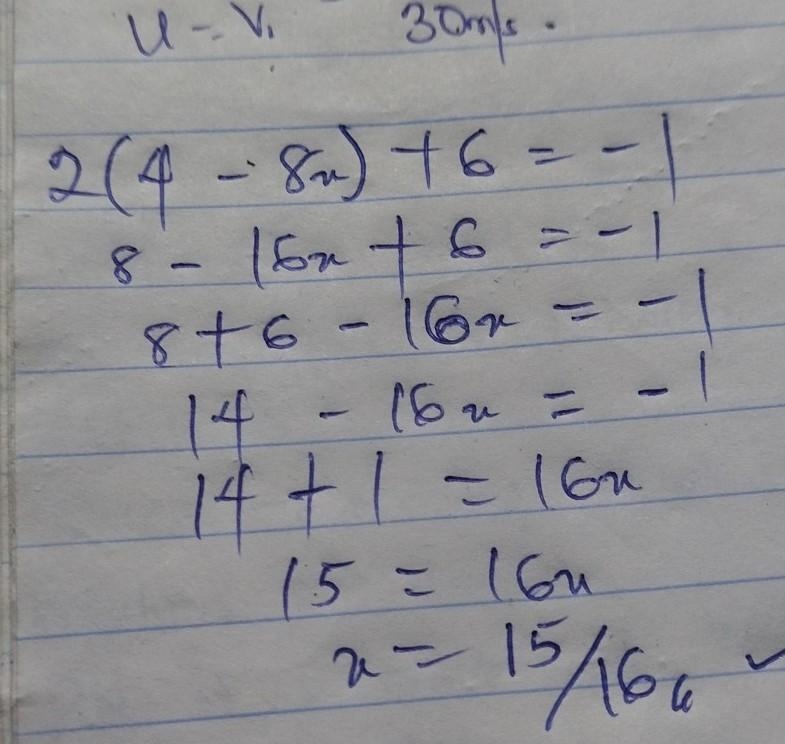 u = v. 30m/s.
2(4 - 8x) + 6 = -1
8 - 16x + 6 = -1
8 + 6 - 16x = -1
14 - 16x = -1
14 + 1 = 16x
15 = 16x
x = 15/16